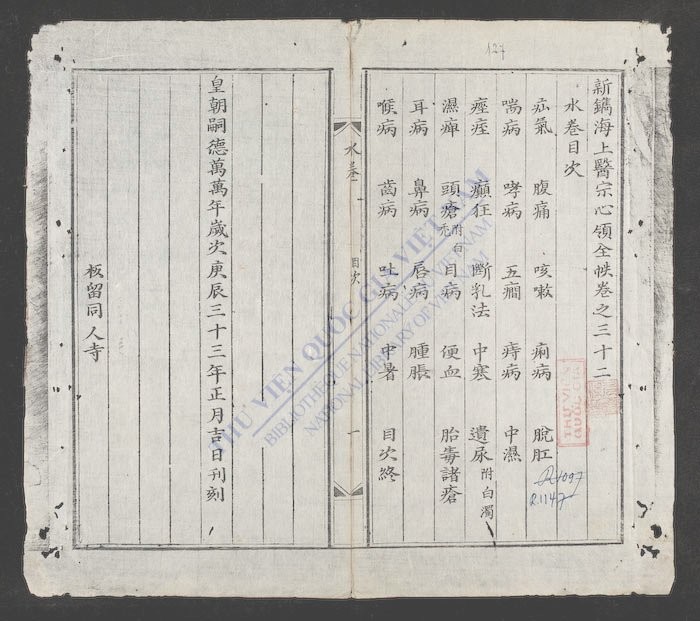 127
新鐫海上醫宗心領全帙卷之三十二
水卷目次
疝氣 腹痛 咳嗽 痢病 脫肛
喘病 哮病 五癇 痔病 中濕
痙痓 癲狂 斷乳法 中寒 遺尿附白濁
濕痺 頭瘡附白禿 目病 便血 胎毒諸瘡
耳病 鼻病 唇病 腫脹
喉病 齒病 吐病 中暑 目次終
水卷 目次 一
皇朝嗣德萬萬年歲次庚辰三十三年正月吉日刊刻
板留同人寺
THƯ VIỆN QUỐC GIA VIỆT NAM
BIBLIOTHÈQUE NATIONALE DU VIETNAM
NATIONAL LIBRARY OF VIETNAM
THƯ VIỆN
QUỐC GIA
R.1147